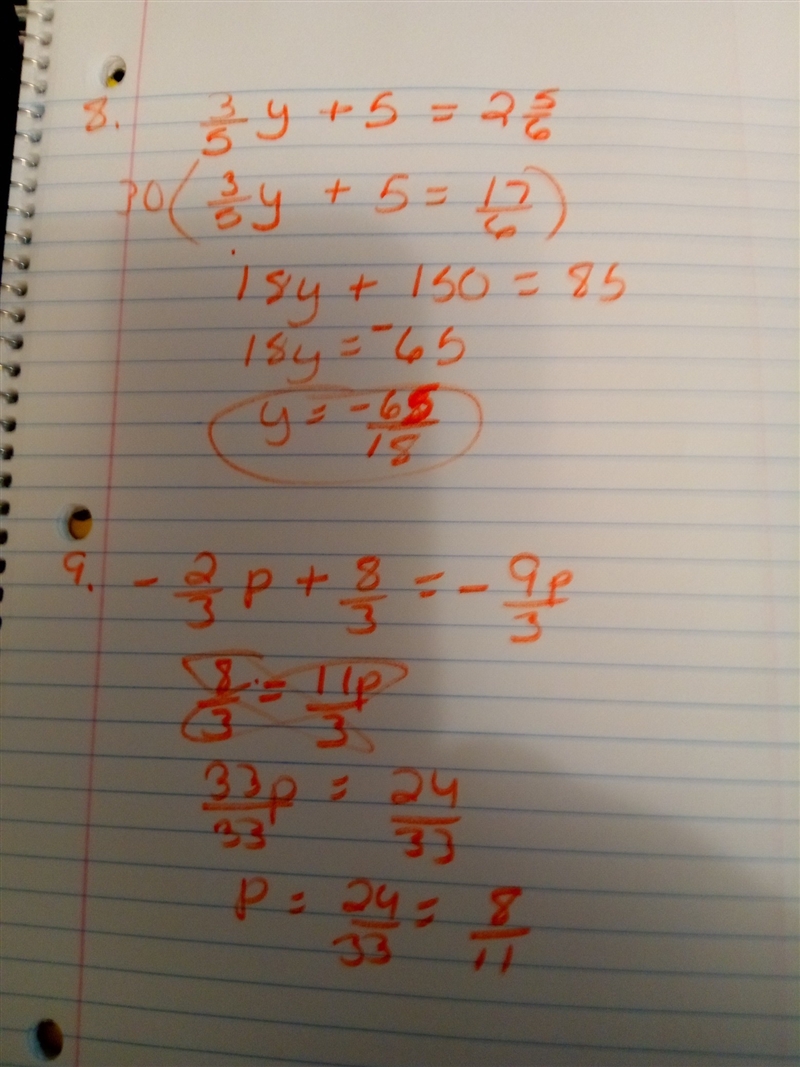 8. 3/5 y + 5 = 2 5/6
30( 3/5 y + 5 = 17/6 )
18y + 150 = 85
18y = -65
y = -65/18
9. - 2/3 p + 8/3 = - 9p/3
8/3 = 11p/3
33p/33 = 24/33
p = 24/33 = 8/11